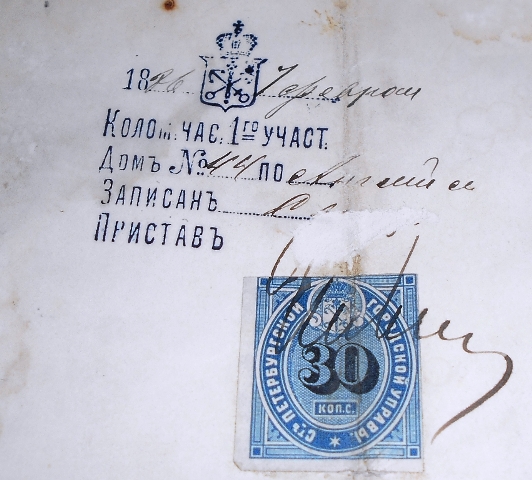 1886 7 февраля
Колом. час. 1го участ.
Домъ № 44 по Англий
Записанъ
Приставъ
С.ТЪ ПЕТЕРБУРГСКОЙ ГОРОДСКОЙ УПРАВЫ.
30
КОП.С.